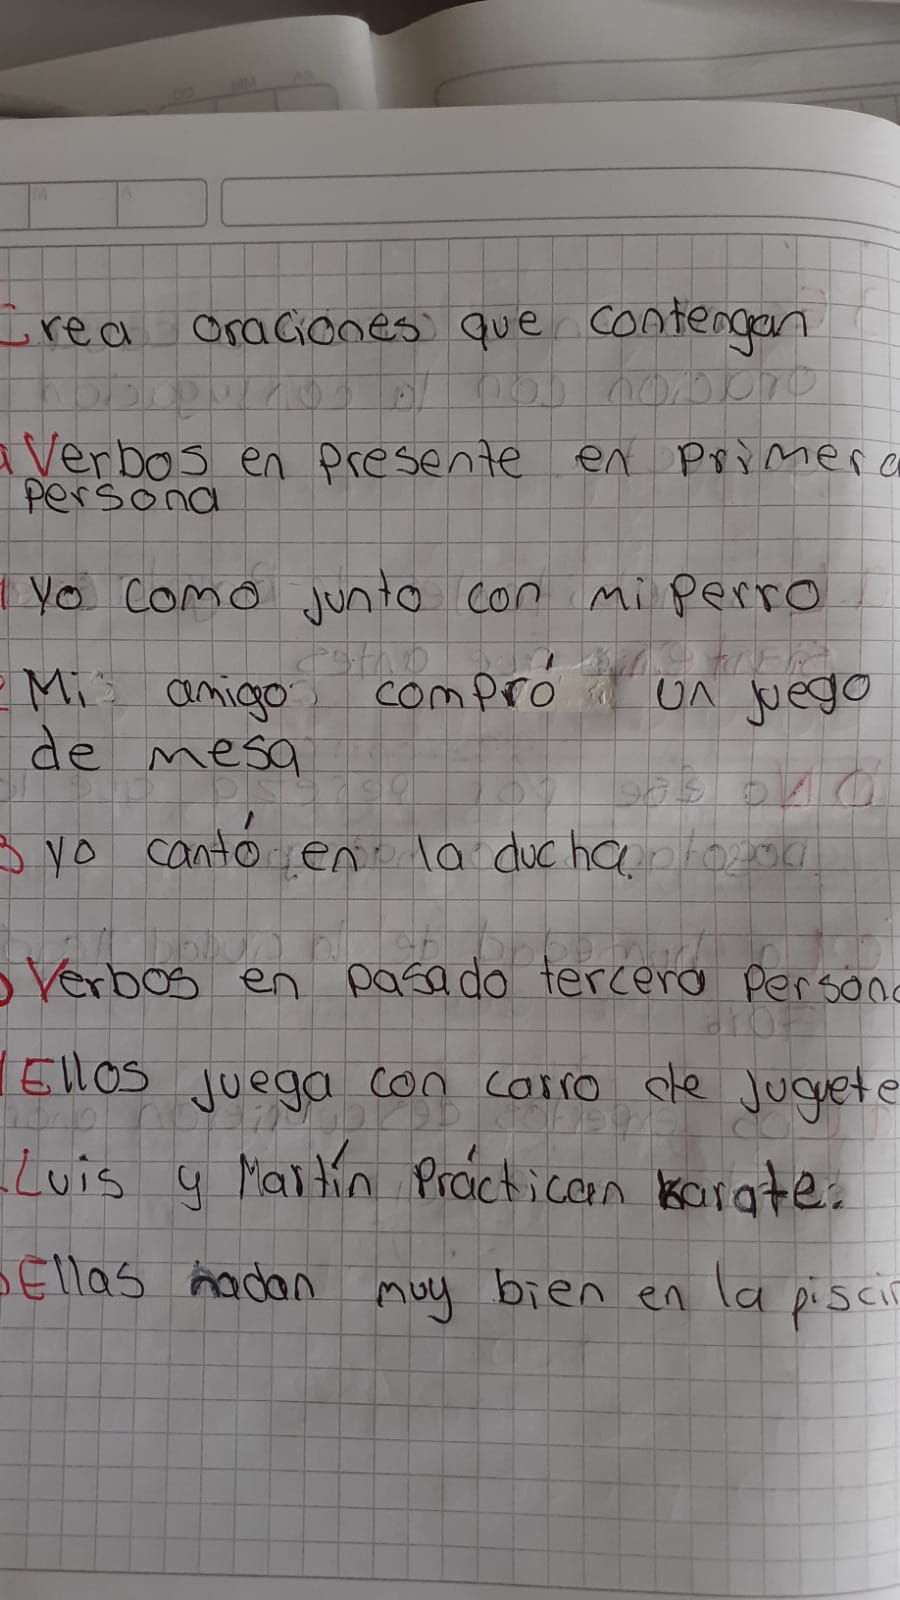 Crea oraciones que contengan
a Verbos en presente en primera
persona
1 yo como junto con mi perro
2 Mi amigo compró un juego
de mesa
3 yo cantó en la ducha.
Verbos en pasado tercera persona
1 Ellos juega con carro de juguete
Luis y Martín Práctican karate.
Ellas nadan muy bien en la